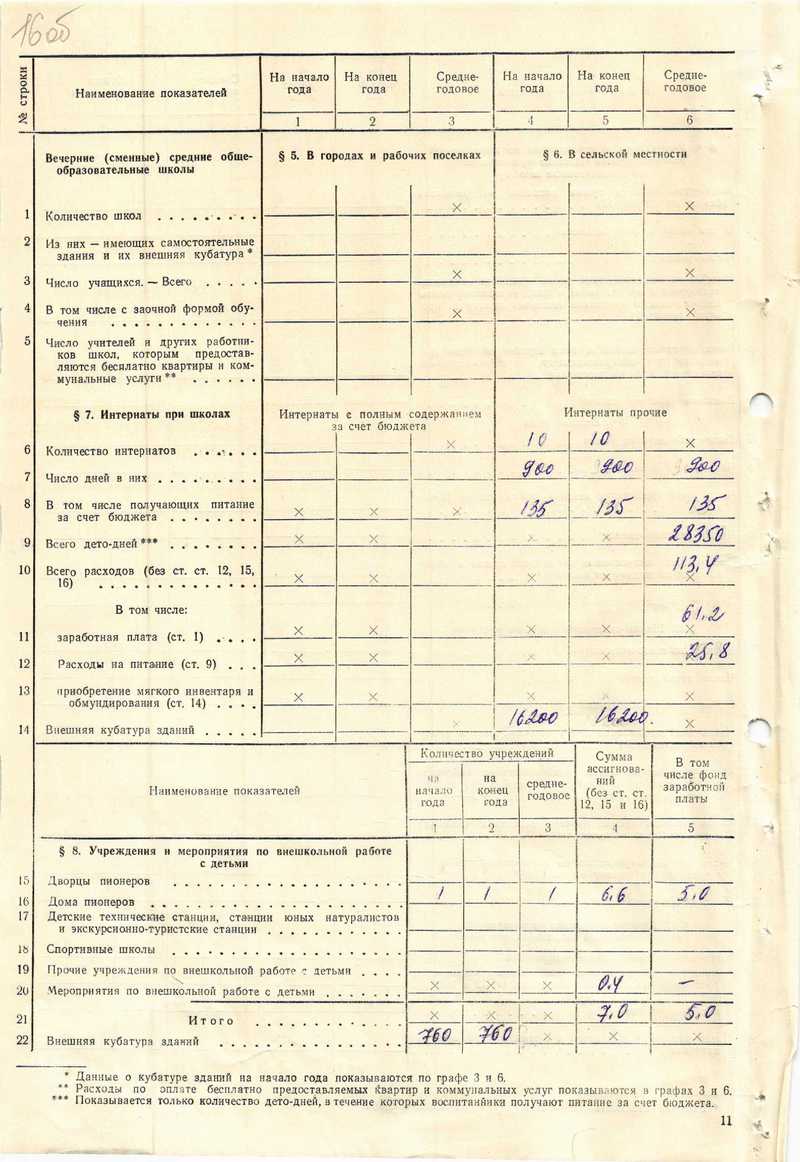 16об
№ строки
Наименование показателей
На начало года
На конец года
Средне-годовое
На начало года
На конец года
Средне-годовое
1 2 3 4 5 6
Вечерние (сменные) средние обще-
образовательные школы
§ 5. В городах и рабочих поселках
§ 6. В сельской местности
1 Количество школ . . . . . . . . . × ×
2 Из них — имеющих самостоятельные
здания и их внешняя кубатура *
3 Число учащихся. — Всего . . . . . × ×
4 В том числе с заочной формой обу-
чения . . . . . . . . . . . . . × ×
5 Число учителей и других работни-
ков школ, которым предостав-
ляются бесплатно квартиры и ком-
мунальные услуги ** . . . . . .
§ 7. Интернаты при школах
Интернаты с полным содержанием
за счет бюджета
Интернаты прочие
6 Количество интернатов . . . . . . × 10 10 ×
7 Число дней в них . . . . . . . . . 900 900 900
8 В том числе получающих питание
за счет бюджета . . . . . . . . × × × 135 135 135
9 Всего дето-дней *** . . . . . . . . × × × × 28350
10 Всего расходов (без ст. ст. 12, 15,
16) . . . . . . . . . . . . . . × × × × 113,4 ×
В том числе:
11 заработная плата (ст. 1) . . . . × × × × 61,2 ×
12 Расходы на питание (ст. 9) . . . × × × × 25,8
13 приобретение мягкого инвентаря и
обмундирования (ст. 14) . . . . × × × × ×
14 Внешняя кубатура зданий . . . . . × 16200 16200. ×
Наименование показателей
Количество учреждений
на начало года
на конец года
средне-годовое
Сумма ассигнова-ний (без ст. ст. 12, 15 и 16)
В том числе фонд заработной платы
1 2 3 4 5
§ 8. Учреждения и мероприятия по внешкольной работе
с детьми
15 Дворцы пионеров . . . . . . . . . . . . . . . . . . . .
16 Дома пионеров . . . . . . . . . . . . . . . . . . . . . . 1 1 1 6,6 5,0
17 Детские технические станции, станции юных натуралистов
и экскурсионно-туристские станции . . . . . . . . . . . .
18 Спортивные школы . . . . . . . . . . . . . . . . . . . .
19 Прочие учреждения по внешкольной работе с детьми . . . .
20 Мероприятия по внешкольной работе с детьми . . . . . . . × × × 0,4 —
21 Итого . . . . . . . . . . . . . × × × 7,0 5,0
22 Внешняя кубатура зданий . . . . . . . . . . . . . . . . 760 760 × × ×
* Данные о кубатуре зданий на начало года показываются по графе 3 и 6.
** Расходы по оплате бесплатно предоставляемых квартир и коммунальных услуг показываются в графах 3 и 6.
*** Показывается только количество дето-дней, в течение которых воспитанники получают питание за счет бюджета.
11